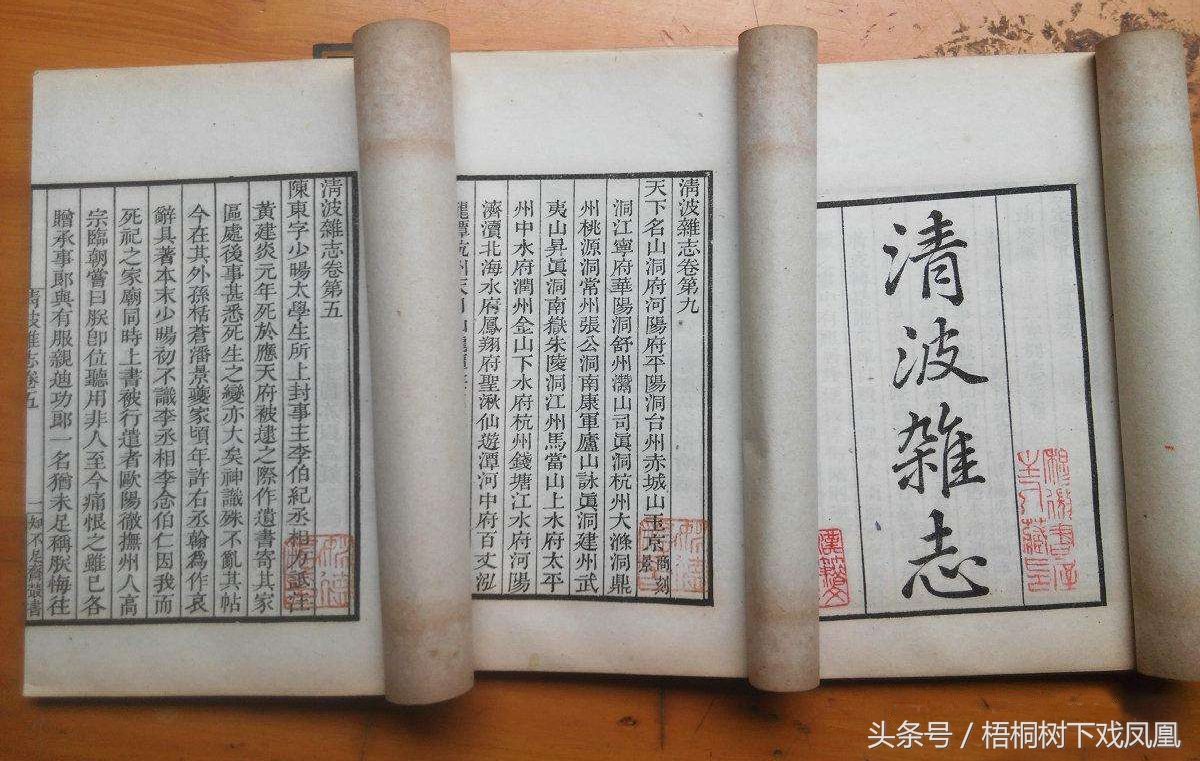 清波雑志
清波雜志卷第九
天下名山洞府河陽府平陽洞台州赤城山玉京商刻景
洞江寧府華陽洞舒州灊山司眞洞杭州大滌洞鼎
州桃源洞常州張公洞南康軍廬山詠眞洞建州武
夷山昇眞洞南嶽朱陵洞江州馬當山上水府太平
州中水府潤州金山下水府杭州錢塘江水府河陽
濟瀆北海水府鳳翔府聖湫仙遊潭河中府百丈泓
龍潭杭州天目山龍潭
清波雜志卷第五
陳東字少暘太學生所上封事主李伯紀丞相力詆汪
黃建炎元年死於應天府被逮之際作遺書寄其家
區處後事甚悉死生之變亦大矣神識殊不亂其帖
今在其外孫栝蒼潘景夔家頃年許右丞翰為作哀
辭具著本末少暘初不識李丞相李念伯仁因我而
死祀之家廟同時上書被行遣者歐陽徹撫州人高
宗臨朝嘗曰朕卽位聽用非人至今痛恨之雖已各
贈承事郎與有服親迪功郎一名猶未足稱朕悔往
清波雜志卷五 一 知不足齋叢書
头条号 / 梧桐树下戏凤凰